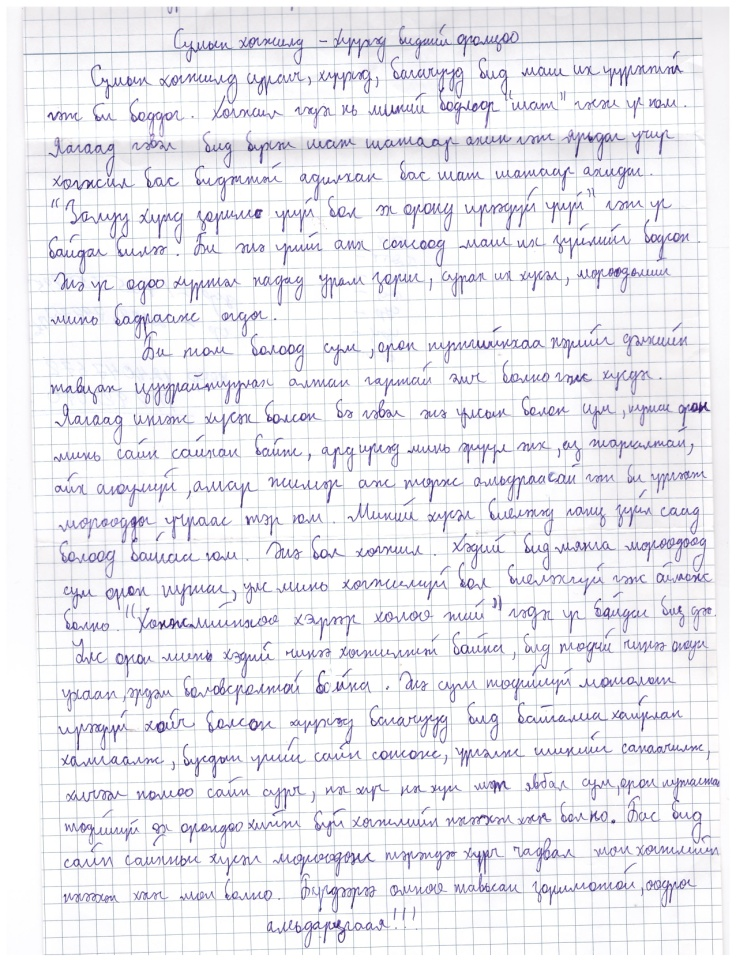 Сумын хөгжилд - Хүүхэд бидний оролцоо
Сумын хөгжилд сурагч, хүүхэд, багачууд бид маш их үүрэгтэй
гэж би боддог. Хөгжил гэдэг нь миний бодлоор "шат" гэсэн үг юм.
Яагаад гэвэл бид бүгд шат шатаар ахин гэж ярьдаг учир
хөгжил бас бидэнтэй адилхан бас шат шатаар ахидаг.
"Залуу хүнд зорилго үгүй бол эх оронд ирээдүй үгүй" гэж үг
байдаг билээ. Би энэ үгийг анх сонсоод маш их зүйлийг бодсон.
Энэ үг одоо хүртэл надад урам зориг, сурах их хүсэл, мөрөөдлийг
минь бадраадаг.
Би том болоод сум, орон нутгийнхаа нэрийг дэлхийн
тавцан цуурайтуулах алтан гартай эмч болно гэж хүсдэг.
Яагаад ингэж хүсэх болсон бэ гэвэл энэ улсын болон сум, нутаг орон
минь сайн сайхан байж, ард иргэд минь эрүүл энх, аз жаргалтай,
айх аюулгүй, амар жимэр аж төрж амьдраасай гэж би үргэлж
мөрөөддөг учраас тэр юм. Миний хүсэл биелэхэд ганц зүйл саад
болоод байгаа юм. Энэ бол хөгжил. Хэдий бид мянга мөрөөдөөд
сум орон нутаг, улс минь хөгжихгүй бол биелэхгүй гэж
болно. "Хөнжлийнхөө хэрээр хөлөө жий" гэдэг үг байдаг биз дээ.
Улс орон минь хэдий чинээ хөгжинө, бид төдий чинээ
ухаан, эрдэм боловсролтой байна. Энэ сум төдийгүй монголын
ирээдүй хойч болсон хүүхэд багачууд бид байгалиа хайрлан
хамгаалж, бусдын үгийг сайн сонсож, үргэлж шинийг санаачилж,
хичээл номоо сайн сурч, нэг хүн явбал сум, орон нутагтаа
төдийгүй эх орондоо хийж буй хөгжлийн нэгээхэн хэсэг болно. Бас бид
сайн сайхныг хүсэн мөрөөдөж тэрэндээ хүрч чадвал мөн хөгжлийн
нэгээхэн хэсэг мөн болно. Бүгдээрээ өмнөө тавьсан зорилготой,
амьдарцгаая!!!